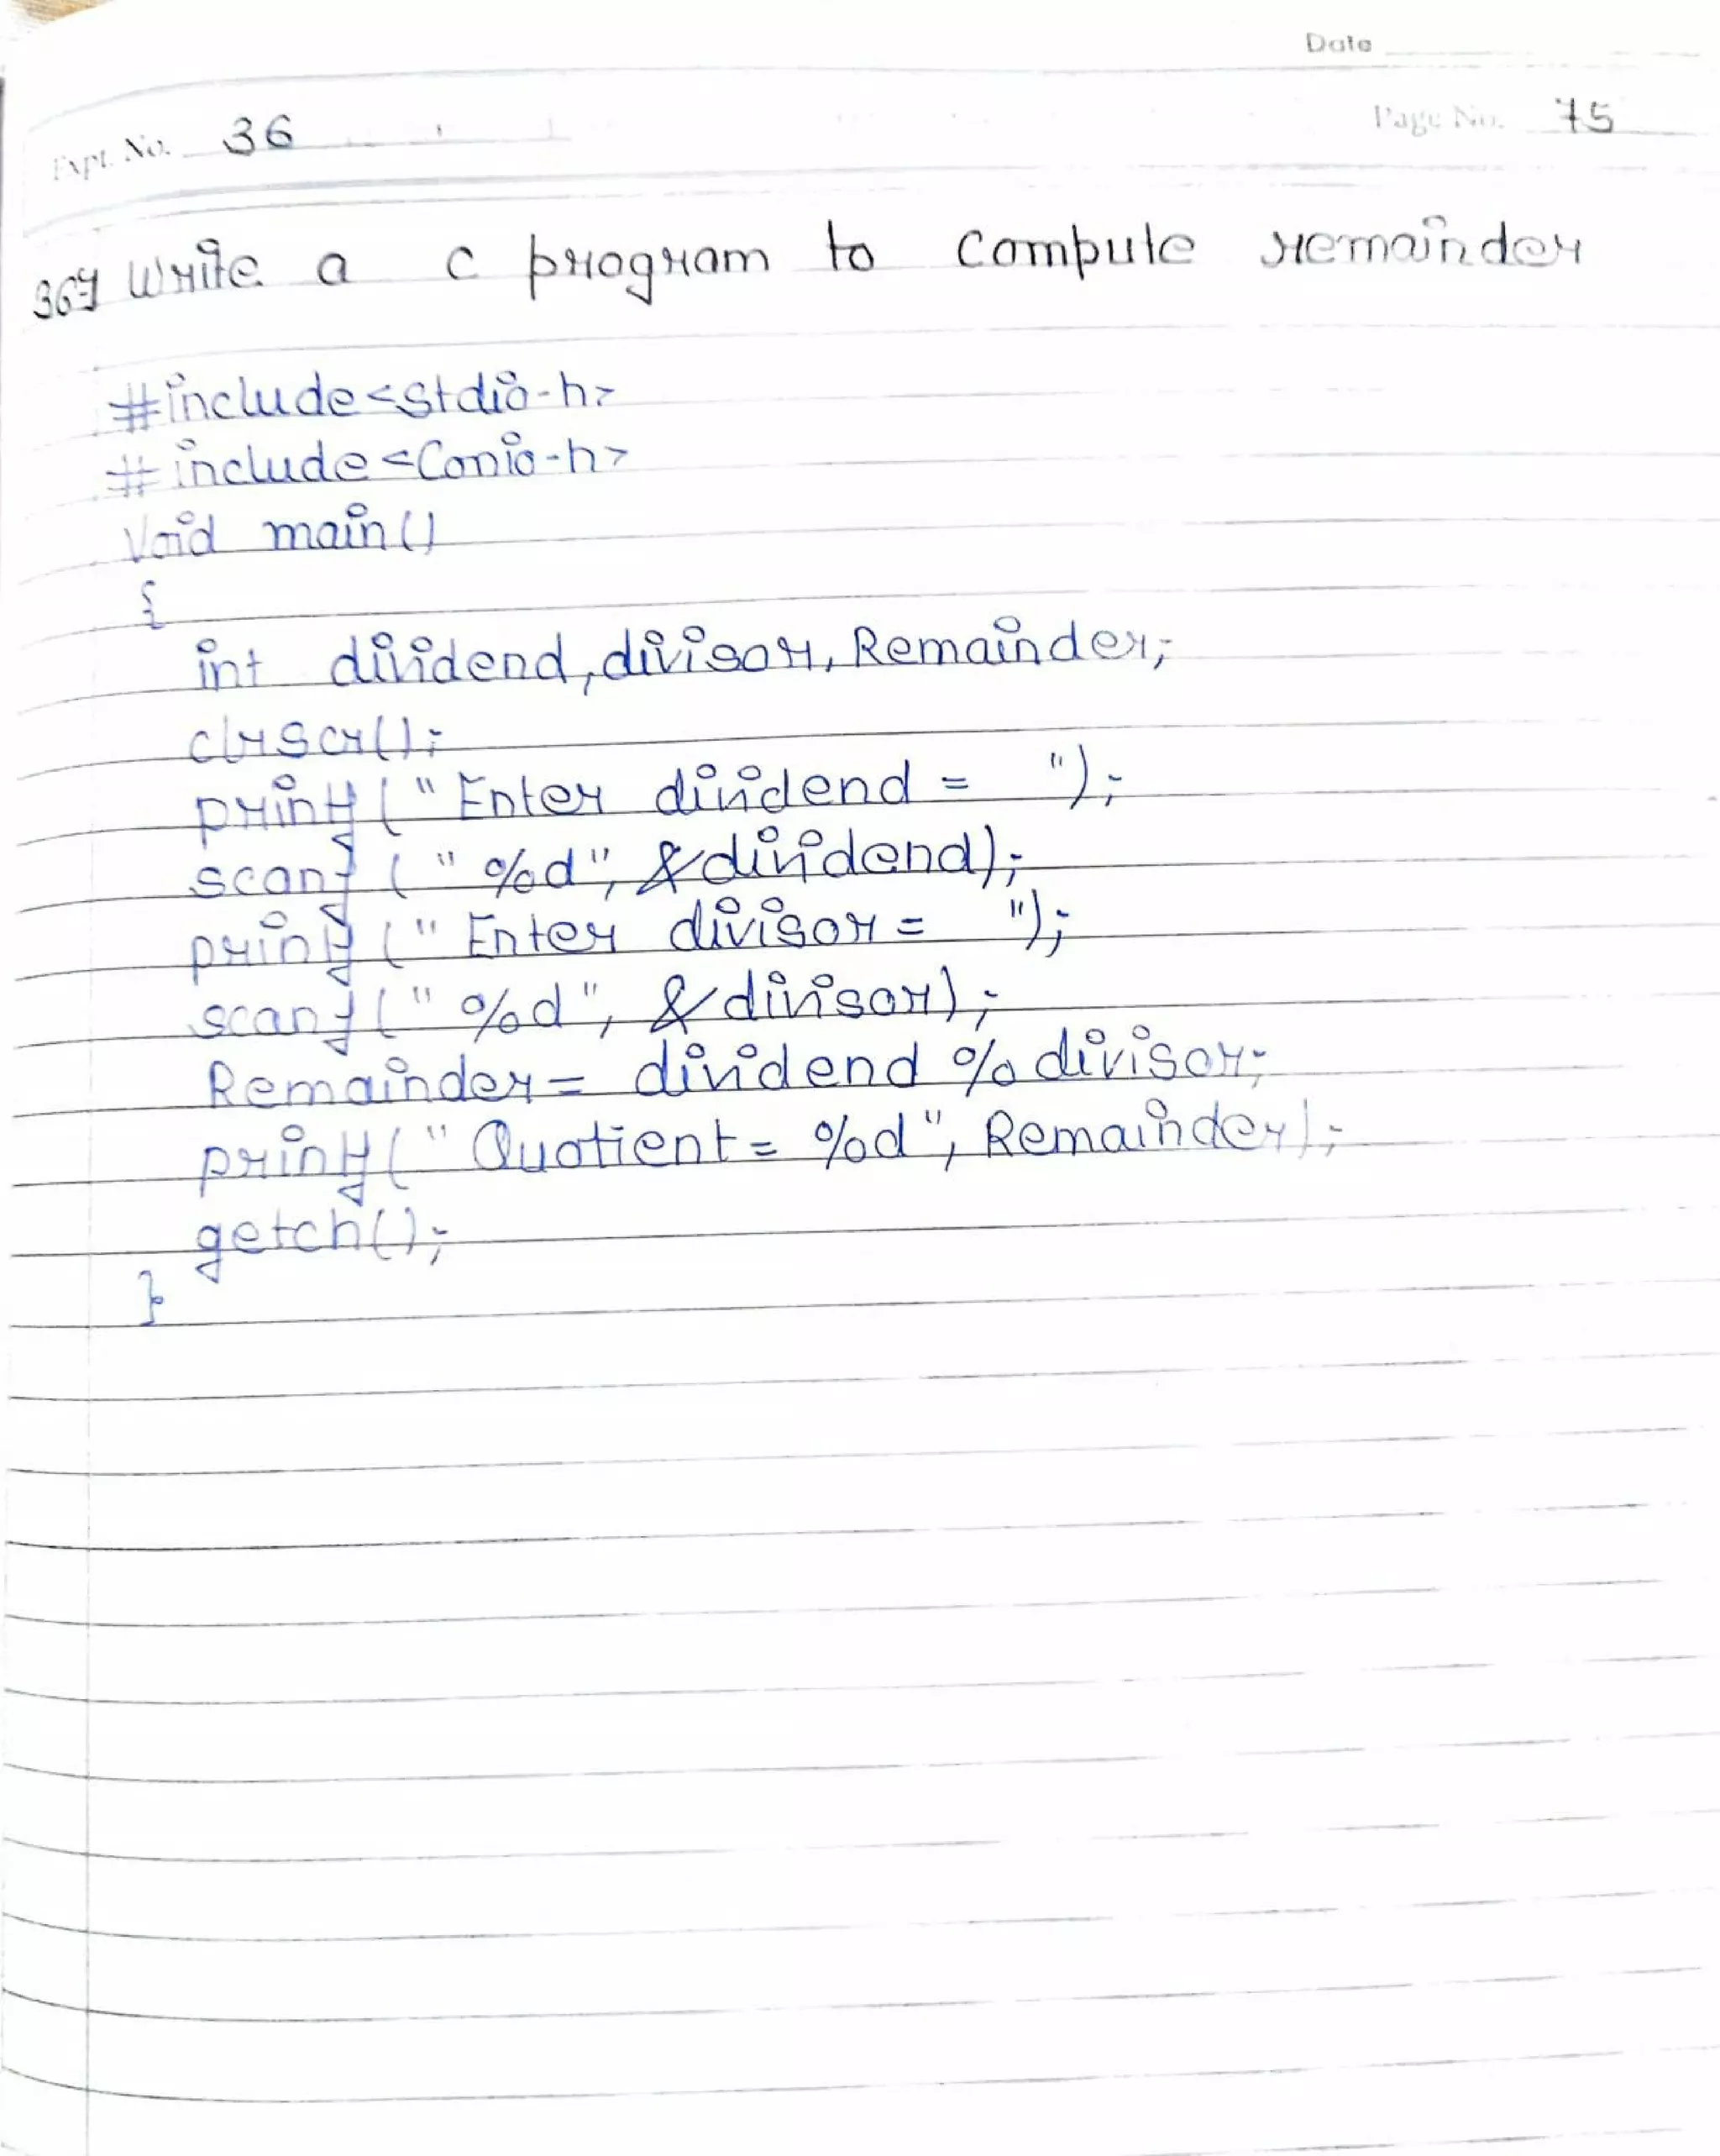 Date
Expt. No. 36
Page No. 75
36) Write a c program to compute remainder
#include<stdio.h>
#include<conio.h>
Void main()
{
int dividend, divisor, Remainder;
clrscr();
printf("Enter dividend = ");
scanf("%d", &dividend);
printf("Enter divisor = ");
scanf("%d", &divisor);
Remainder = dividend % divisor;
printf("Quotient = %d", Remainder);
getch();
}